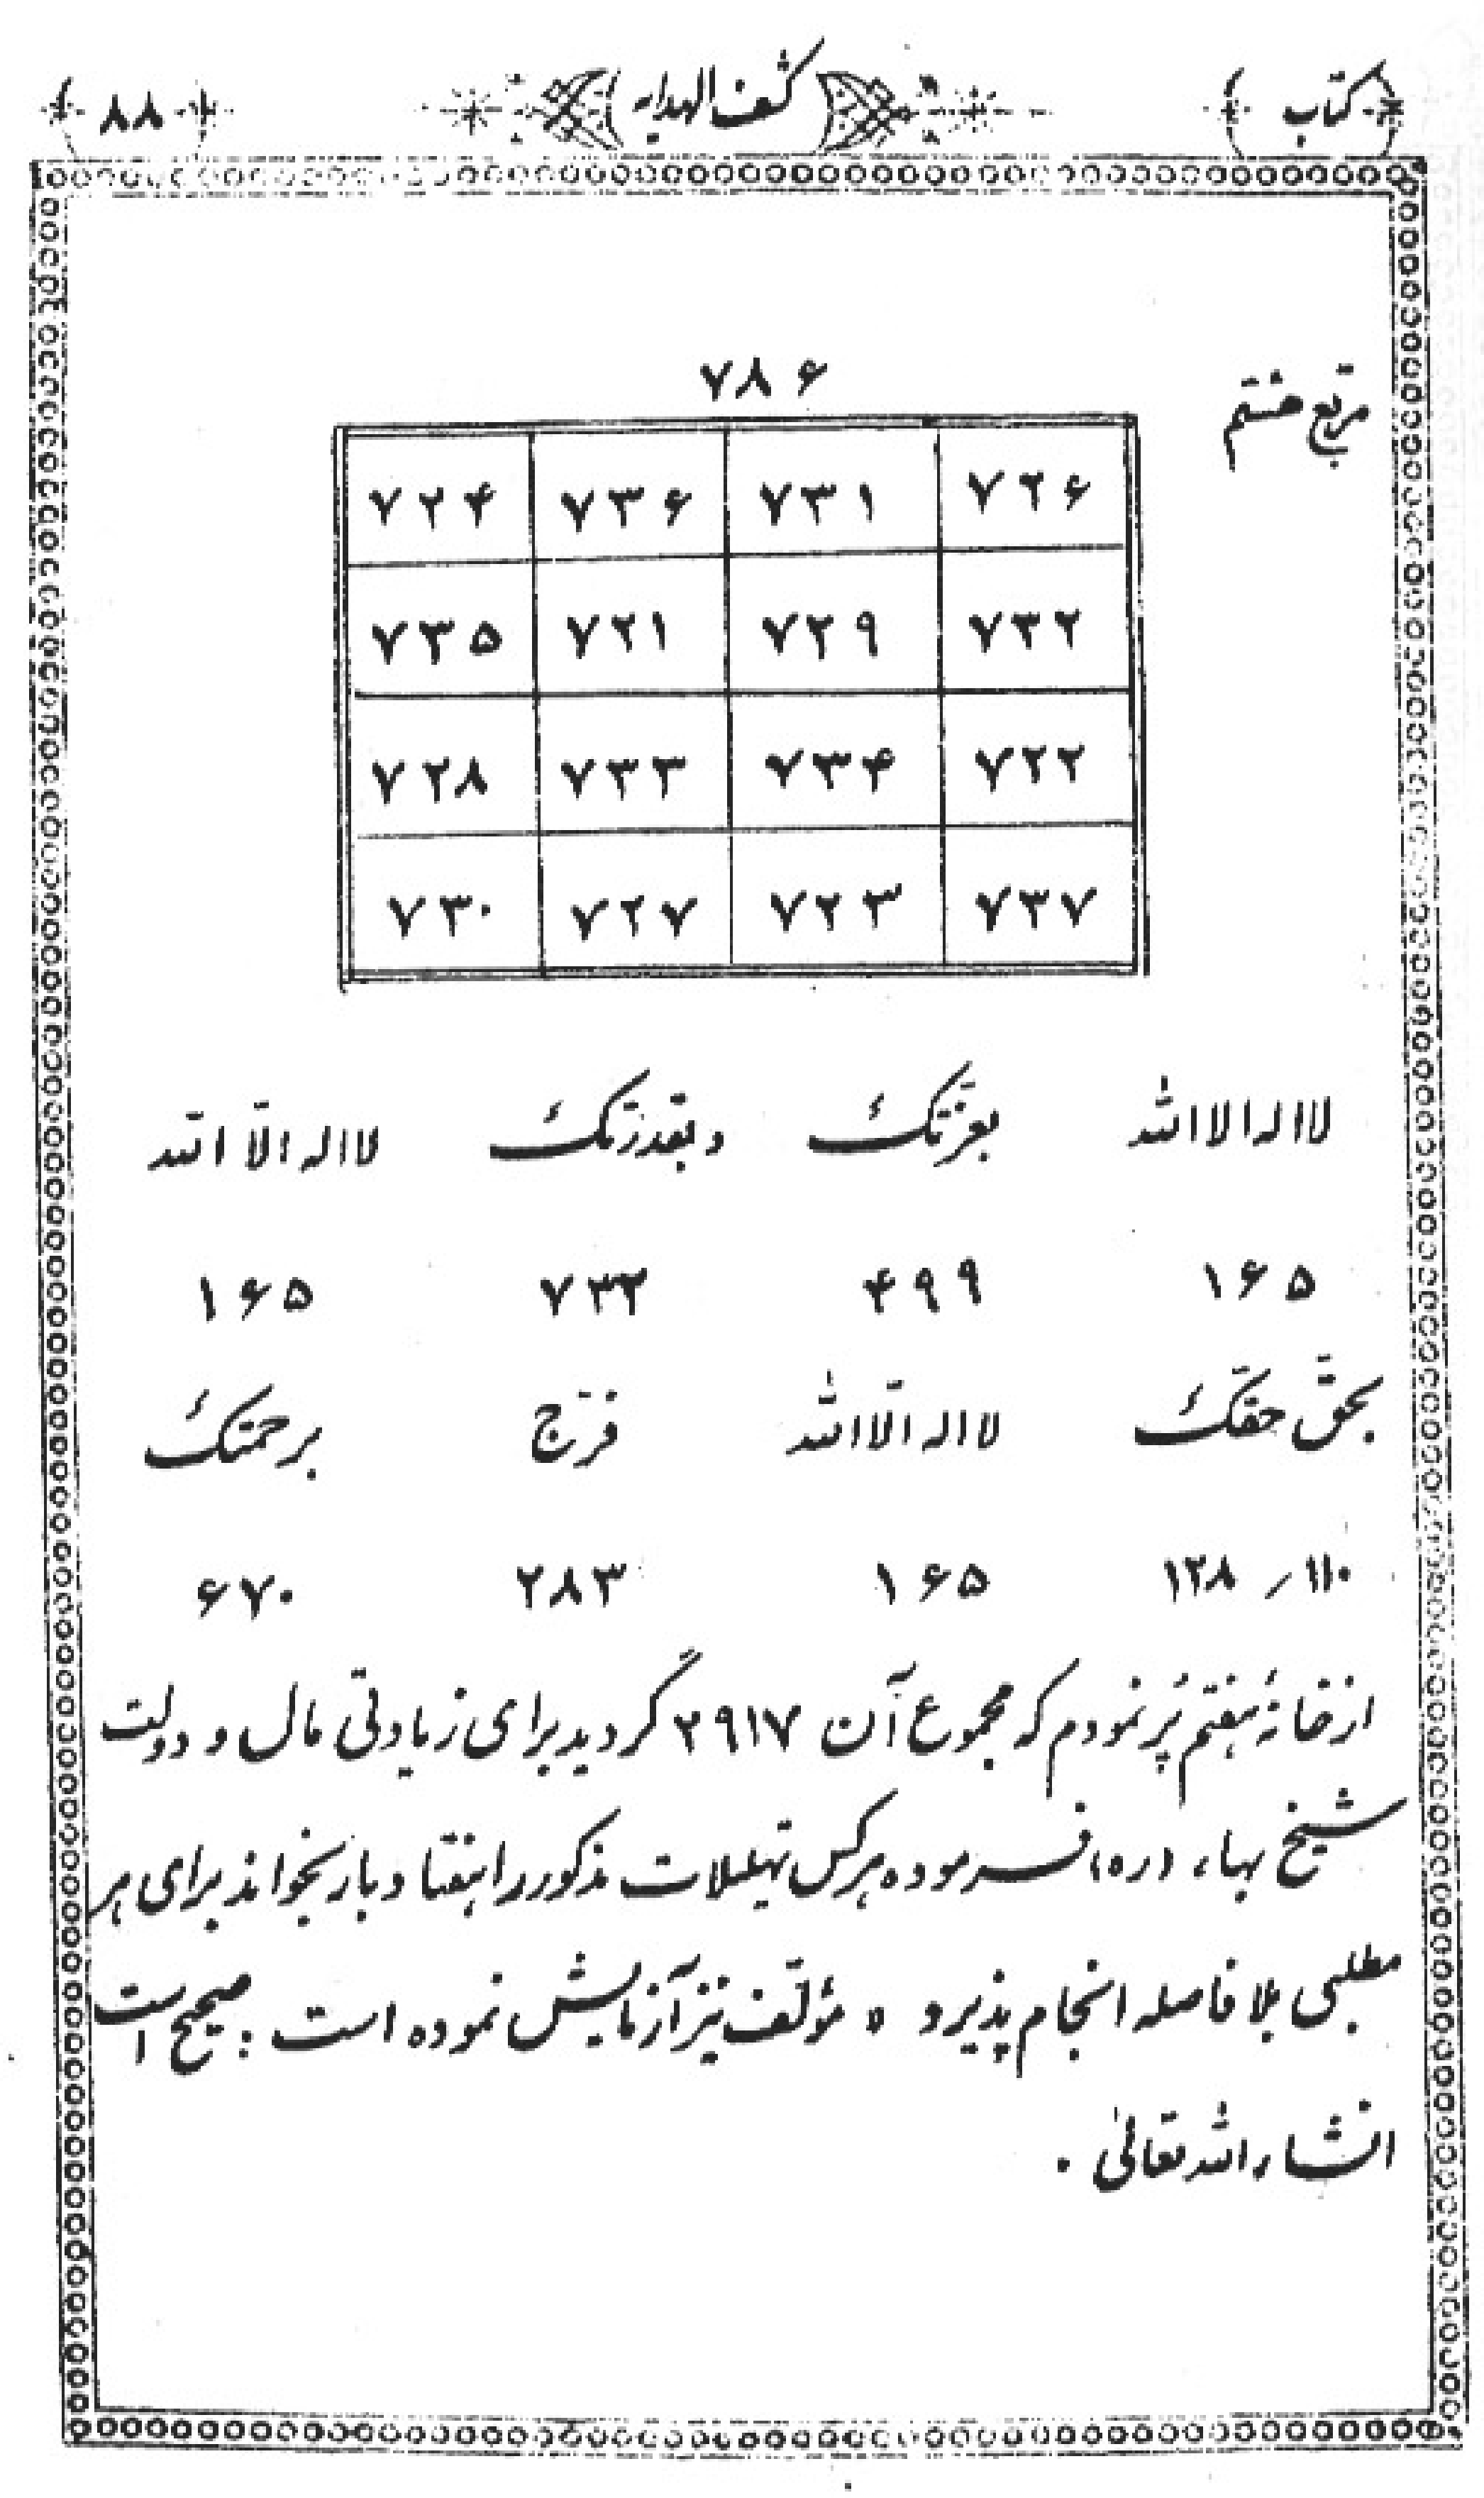 کتاب کشف الهدایه ۸۸
مربع هشتم
۷۸۶
۷۲۴ ۷۳۶ ۷۳۱ ۷۲۶
۷۳۵ ۷۲۱ ۷۲۹ ۷۳۲
۷۲۸ ۷۳۳ ۷۳۴ ۷۲۲
۷۳۰ ۷۲۷ ۷۲۳ ۷۳۷
لا اله الا الله بعزّتک و بقدرتک لا اله الّا الله
۱۶۵ ۴۹۹ ۷۳۲ ۱۶۵
بحقّ حقّک لا اله الّا الله فرّج برحمتک
۱۱۰ / ۱۲۸ ۱۶۵ ۲۸۳ ۶۷۰
از خانهٔ هفتم پُر نمودم که مجموع آن ۲۹۱۷ گردید برای زیادتی مال و دولت
شیخ بهاء (ره) فرموده هرکس تهلیلات مذکور را هفتاد بار بخواند برای هر
مطلبی بلا فاصله انجام پذیرد ه مؤلّف نیز آزمایش نموده است : صحیح است
انشاء الله تعالیٰ .